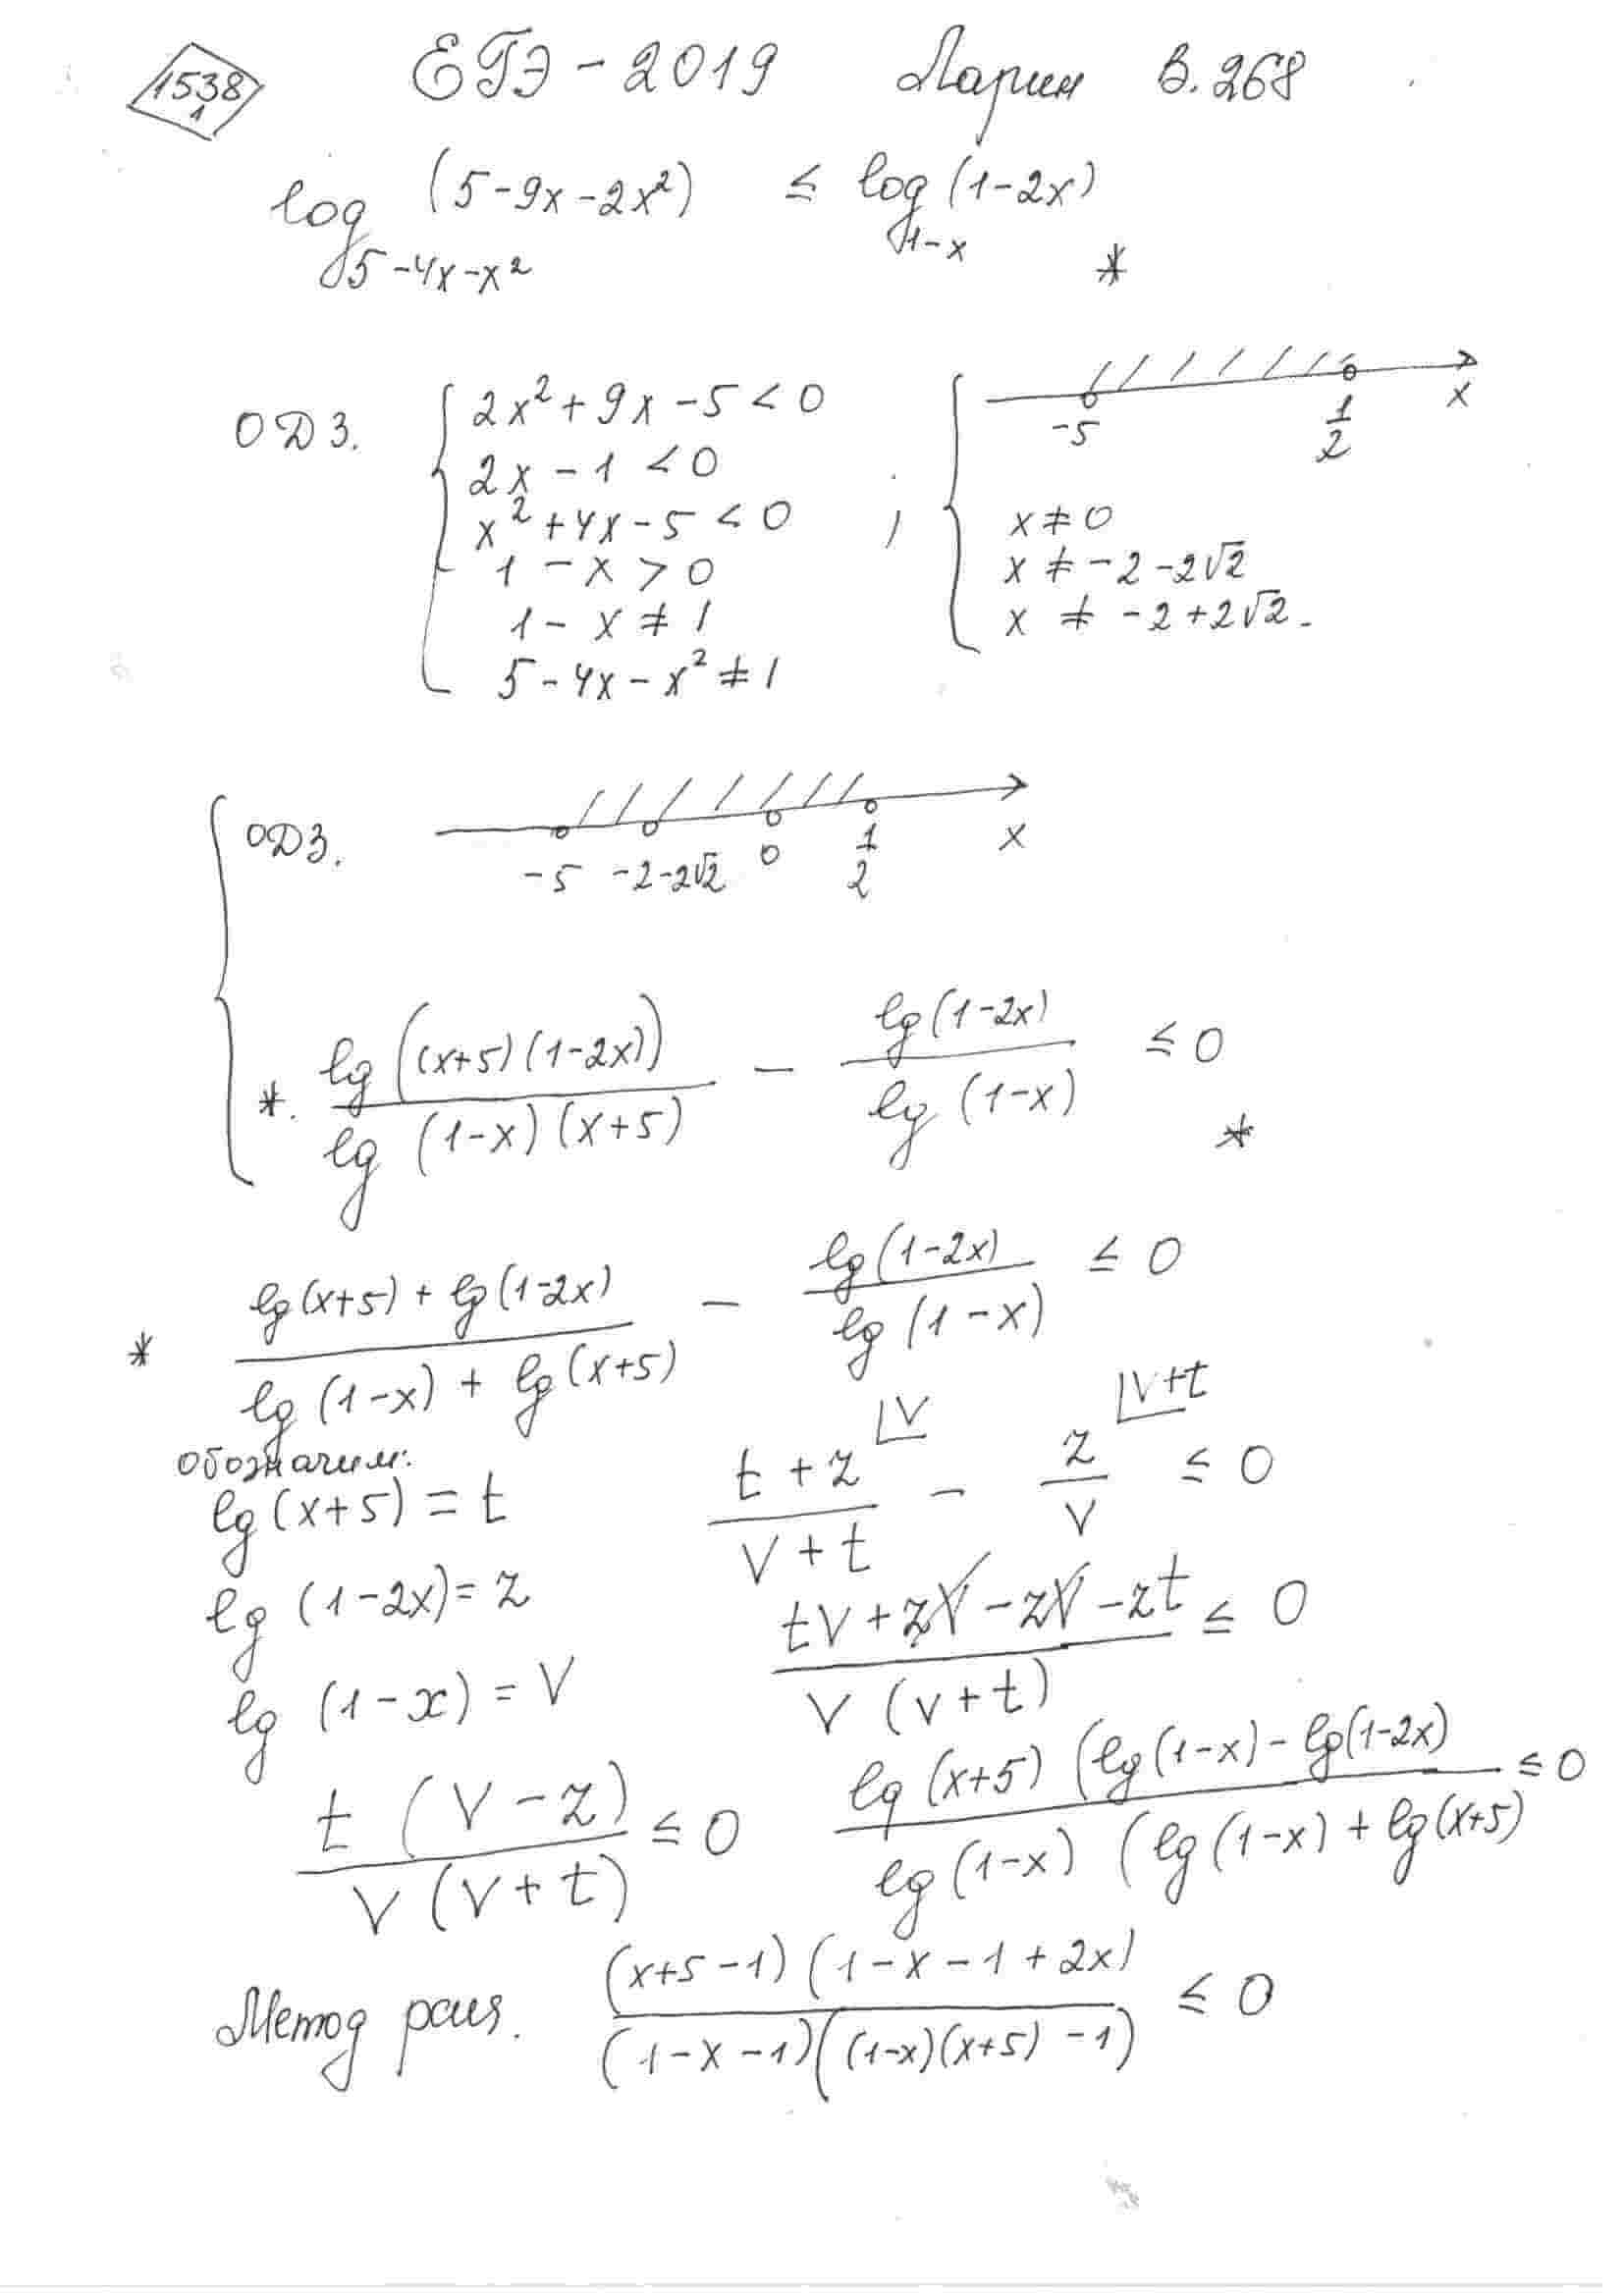 1538
1
ЕГЭ - 2019 Ларин В. 268
log_{5-4x-x²} (5-9x-2x²) ≤ log_{1-x} (1-2x) *
ОДЗ. { 2x² + 9x - 5 < 0
2x - 1 < 0
x² + 4x - 5 < 0
1 - x > 0
1 - x ≠ 1
5 - 4x - x² ≠ 1
; { -5 1/2 x
x ≠ 0
x ≠ -2 - 2√2
x ≠ -2 + 2√2.
{ ОДЗ. -5 -2-2√2 0 1/2 x
*. lg((x+5)(1-2x)) / lg(1-x)(x+5) - lg(1-2x) / lg(1-x) ≤ 0 *
* (lg(x+5) + lg(1-2x)) / (lg(1-x) + lg(x+5)) - lg(1-2x) / lg(1-x) ≤ 0
обозначим:
lg(x+5) = t
lg(1-2x) = z
lg(1-x) = V
(t + z) / (V + t) |V - z / V |V+t ≤ 0
(tV + zV - zV - zt) / (V(V+t)) ≤ 0
t(V - z) / (V(V+t)) ≤ 0
lg(x+5)(lg(1-x) - lg(1-2x) / lg(1-x)(lg(1-x) + lg(x+5) ≤ 0
Метод рац. (x+5-1)(1-x-1+2x) / (1-x-1)((1-x)(x+5)-1) ≤ 0